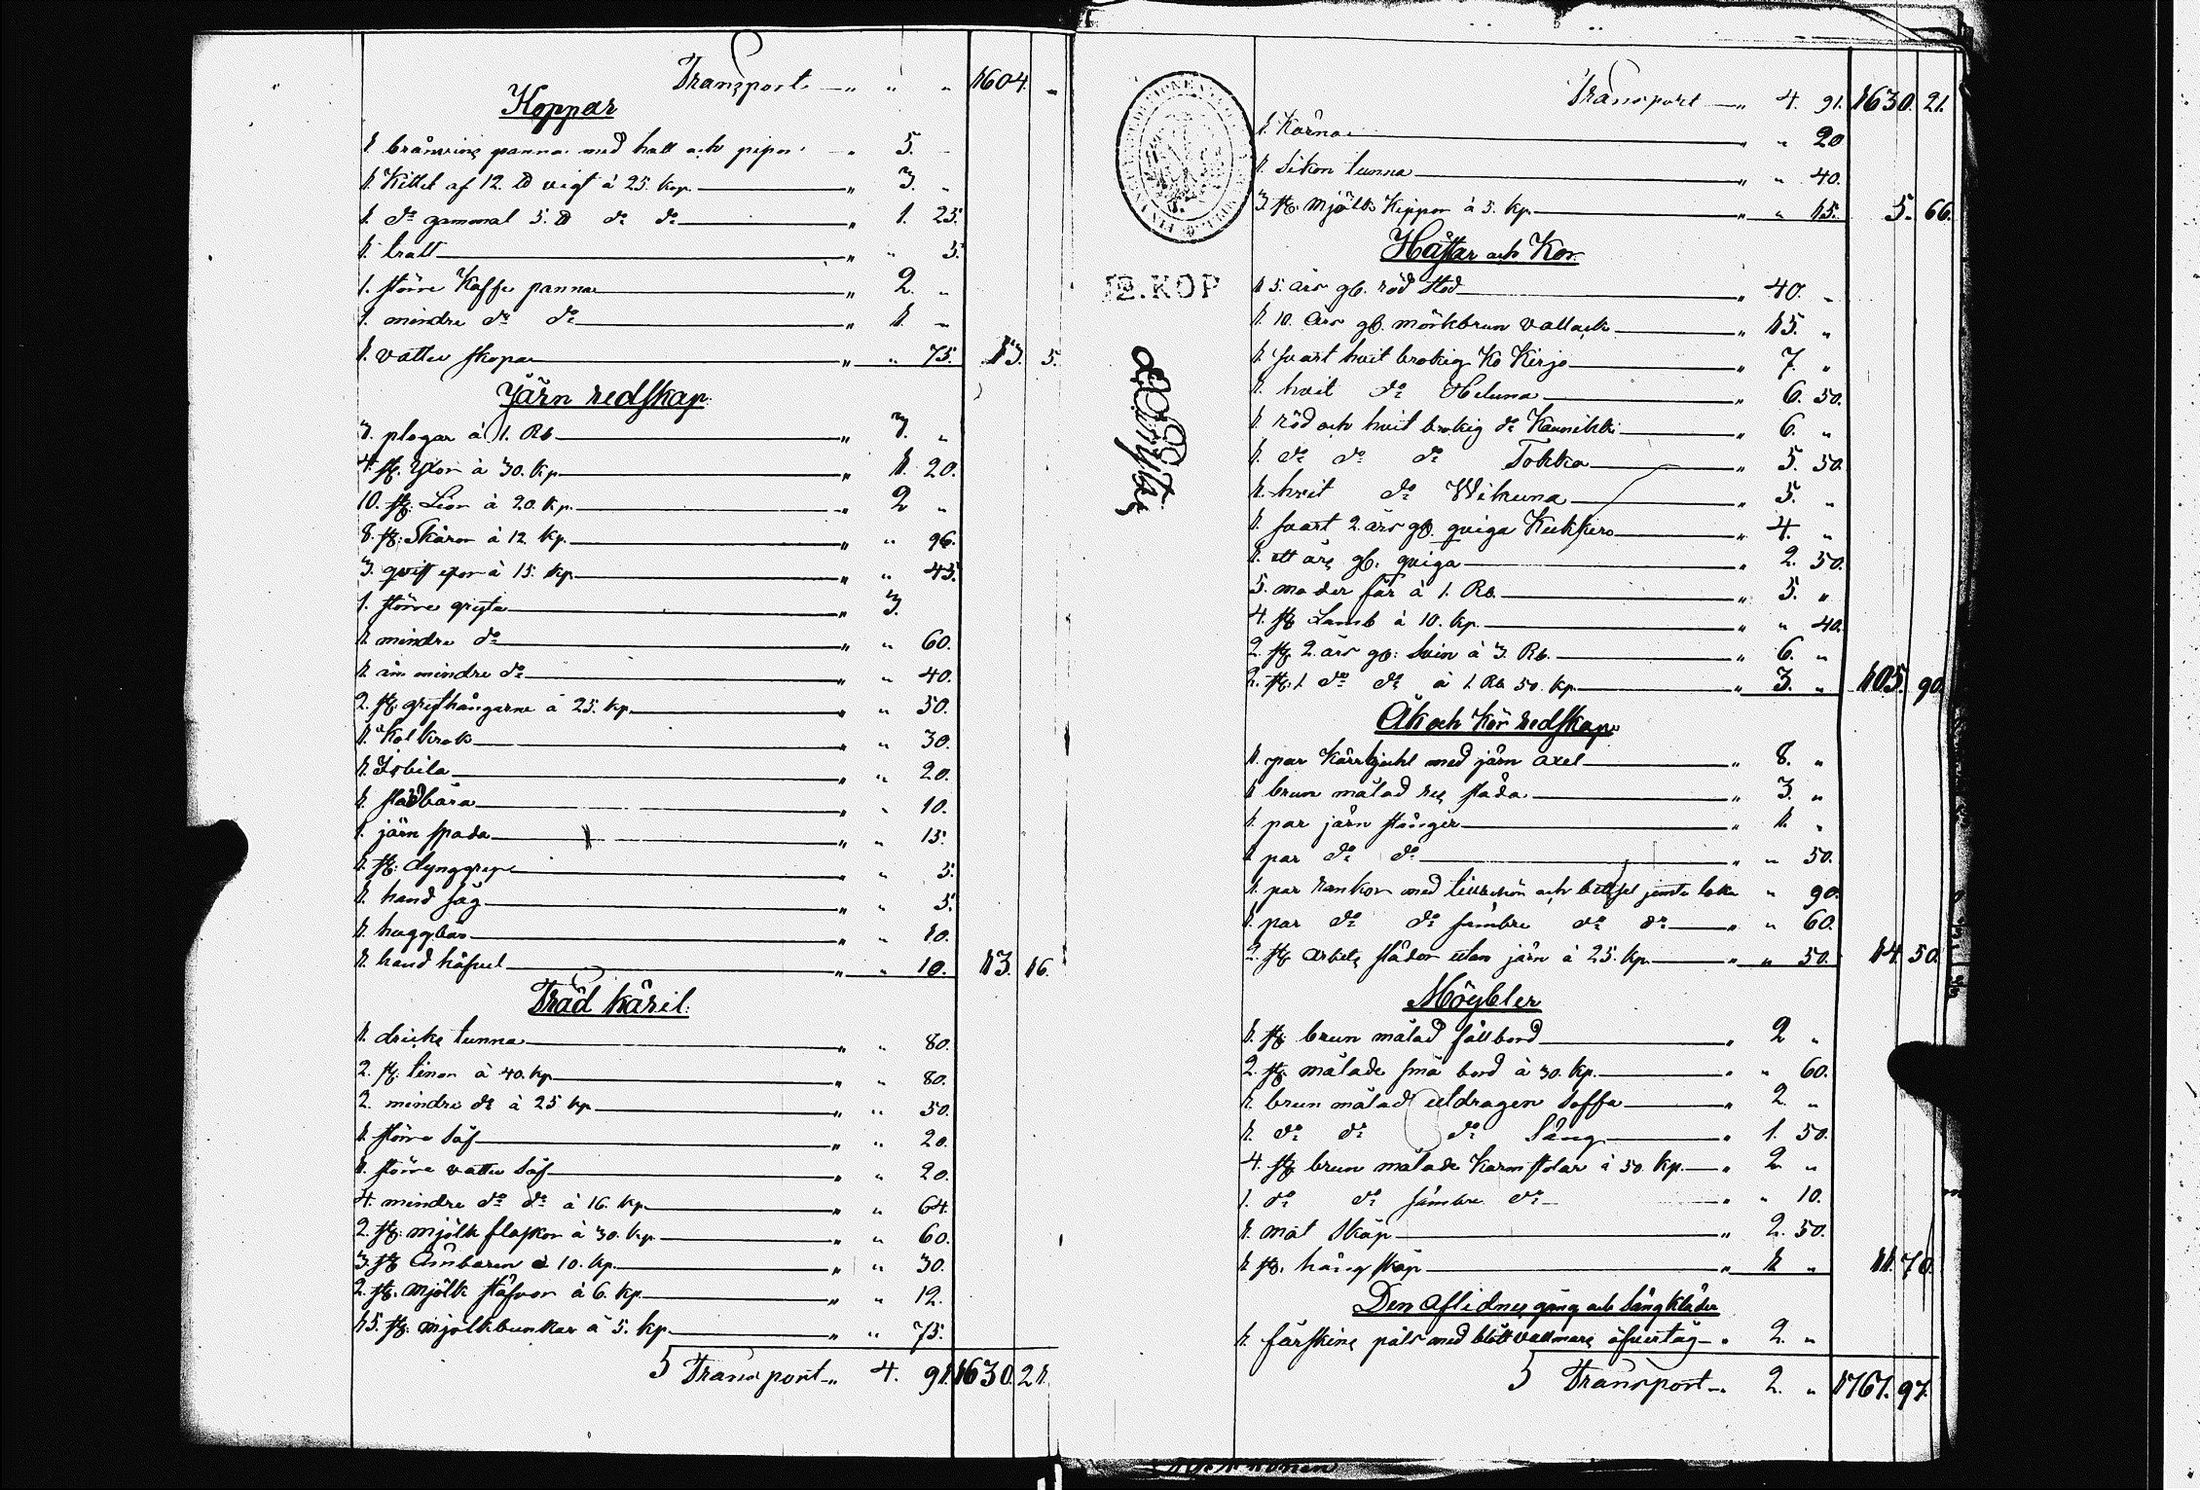 Transport " " " 1604. "
Koppar
1 brånvins panna med hatt och pipor " 5. "
1. Kittel af 12. ℔ vigt à 25. kop. " 3. "
1 do gammal 5. ℔ do do " 1. 25.
1. tratt " " 5.
1. större Kaffe panna " 2. "
1. mindre do do " 1. "
1. vatten skopa " " 75. 13. 5.
Järn redskap
3. plogar à 1. Rb " 3. "
4. st. Yxor à 30. kp " 1. 20.
10. st. Lior à 20. kp. " 2 "
8. st. Skäror à 12 kp. " " 96.
3. qvist yxor à 15. kp " " 45.
1. större gryta " 3.
1. mindre do " " 60.
1. än mindre do " " 40.
2. st. grythängarne à 25. kp. " " 50.
1. Kol krok " " 30.
1. Isbila " " 20.
1. stadbära " " 10.
1. järn spada " " 15.
1. st. dynggrep " " 5.
1. hand såg " " 5.
1. huggbår " " 10.
1. hand håfvel " " 10. 13. 16.
Träd käril.
1. dricks tunna " " 80.
2. st. tinor à 40. kp " " 80.
2. mindre do à 25 kp " " 50.
1. större såf " " 20.
1. större vatten såf " " 20.
4. mindre do do à 16. kp. " " 64.
2. st. mjölk flaskor à 30. kp " " 60.
3. st Ämbaren à 10. kp. " " 30.
2. st. mjölk stäfvor à 6. kp. " " 12.
15. st. mjölkbunkar à 5. kp. " " 75.
Transport " 4. 91. 1630. 21.
Transport " 4. 91. 1630. 21.
1. Kärna " " 20
1. Sikon tunna " " 40.
3. st. Mjölk Kippor à 5. kp. " " 15. 5. 66.
2.KOP
Hästar och Kor.
1 5. års gb. röd Stod " 40. "
1. 10. års gb. mörkbrun vallack " 15. "
1. svart hvit brokig Ko Kirjo " 7. "
1. hvit do Heluna " 6. 50.
1. röd och hvit brokig do Kaunikki " 6. "
1. do do do Tokka " 5. 50.
1. hvit do Wikuna " 5. "
1. svart 2. års gb. qviga Kukkero " 4. "
1. ett års gb. qviga " 2. 50.
5. moder får à 1. Rb. " 5. "
4. st Lamb à 10. kp. " " 40.
2. st. 2. års gb. Svin à 3. Rb. " 6. "
2. st. 1. do do à 1. Rb. 50. kp. " 3. " 105. 90.
Åk och Kör redskap
1. par Kärrhjuhl med järn axel " 8. "
1 brun målad res släda " 3. "
1. par järn stänger " 1. "
1 par do do " " 50.
1. par rankor med timmen och bettsel jemte loka " 90.
1. par do do sämbre do do " " 60.
2. st arbets slädor utan järn à 25. kp. " " 50. 14. 50.
Möybler
1. st. brun målad fällbord " 2 "
2. st. målade små bord à 30. kp. " " 60.
1. brun målad utdragen soffa " 2. "
1. do do do Säng " 1. 50.
4. st brun målade Karmstolar à 50. kp. " 2 "
1. do do sämbre do " " 10.
1. mat skåp " 2. 50.
1 st. häng skåp " 1 " 11. 70.
Den Aflidnes gång och Sängkläder
1. fårskins päls med blått vallmars öfvertåg " 2. "
Transport " 2. " 1767. 97.